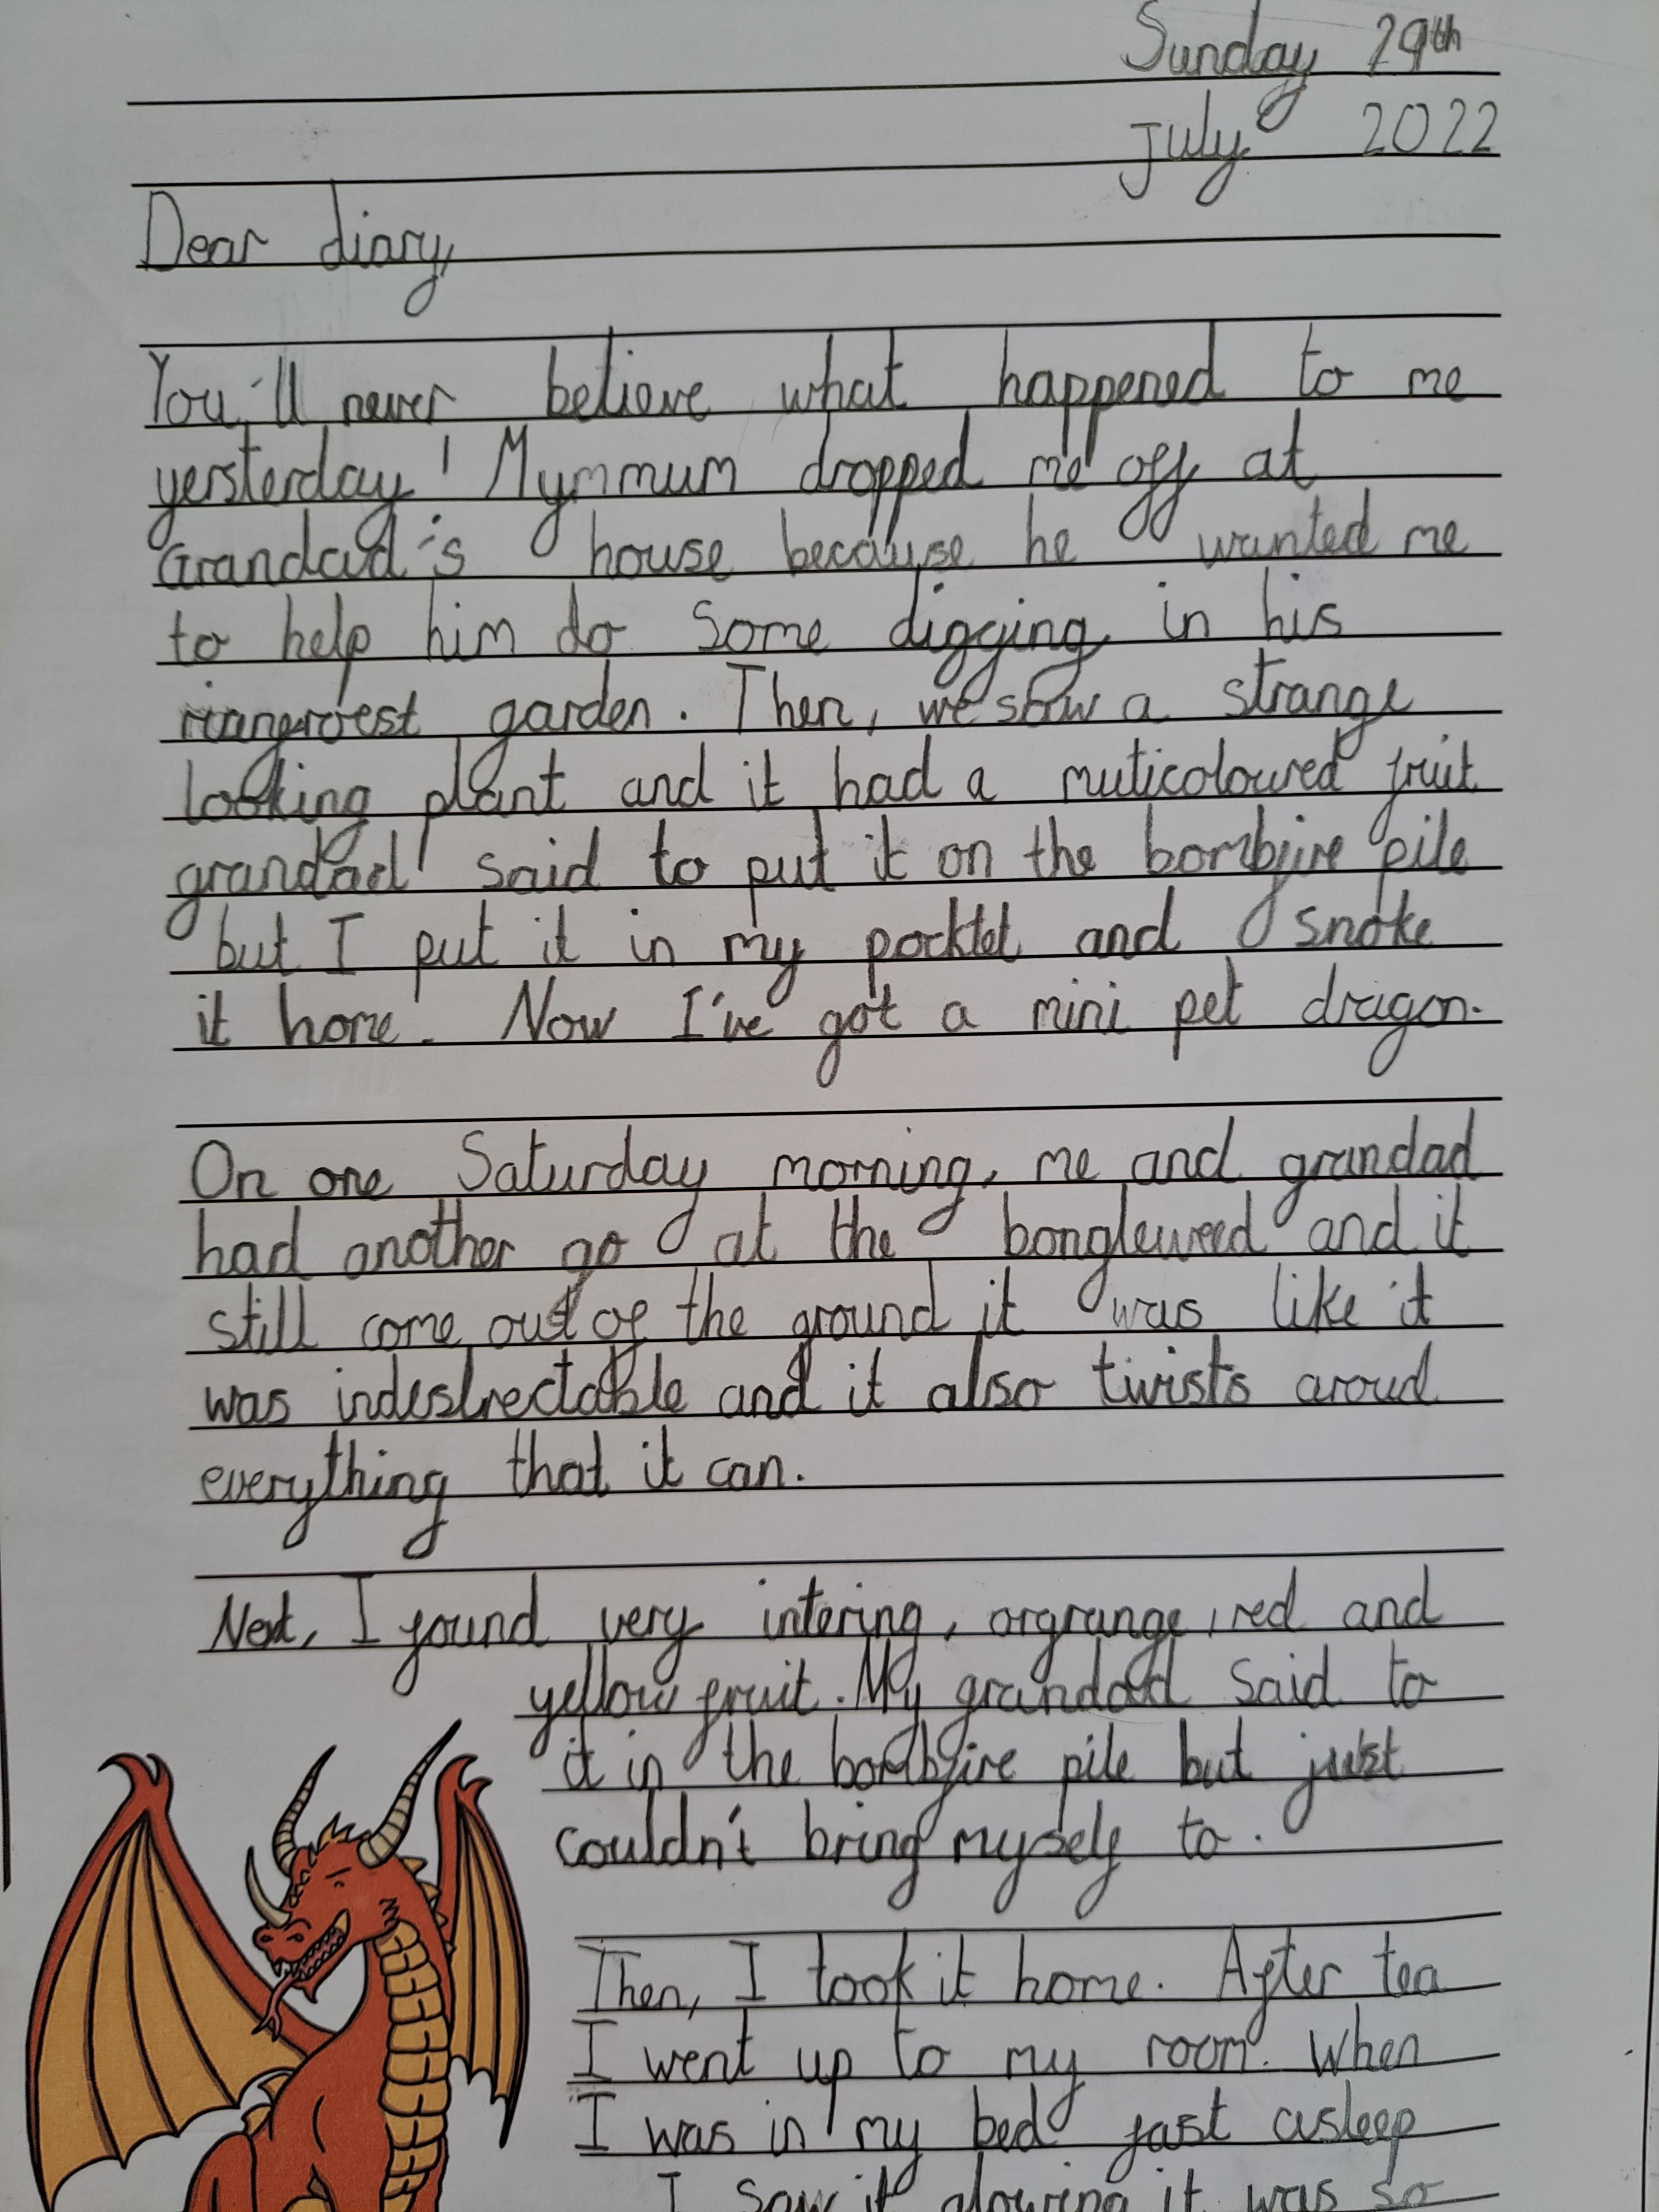 Sunday 29th
July 2022
Dear diary,
You'll never believe what happened to me
yersterday! Mymmum dropped me off at
Grandad's house because he wanted me
to help him do some digging in his
garden. Then, we saw a strange
looking plant and it had a muticoloured fruit
grandad said to put it on the bombfire pile
but I put it in my pocktet and snoke
it home. Now I've got a mini pet dragon.
On one Saturday morning, me and grandad
had another go at the bongleweed and it
still come out of the ground it was like it
was indestrectable and it also twists aroud
everything that it can.
Next, I found very intering, orgrange, red and
yellow fruit. My grandad said to
it in the bombfire pile but just
couldn't bring myself to.
Then, I took it home. After tea
I went up to my room. When
I was in my bed fast asleep
I saw it glowing it was so